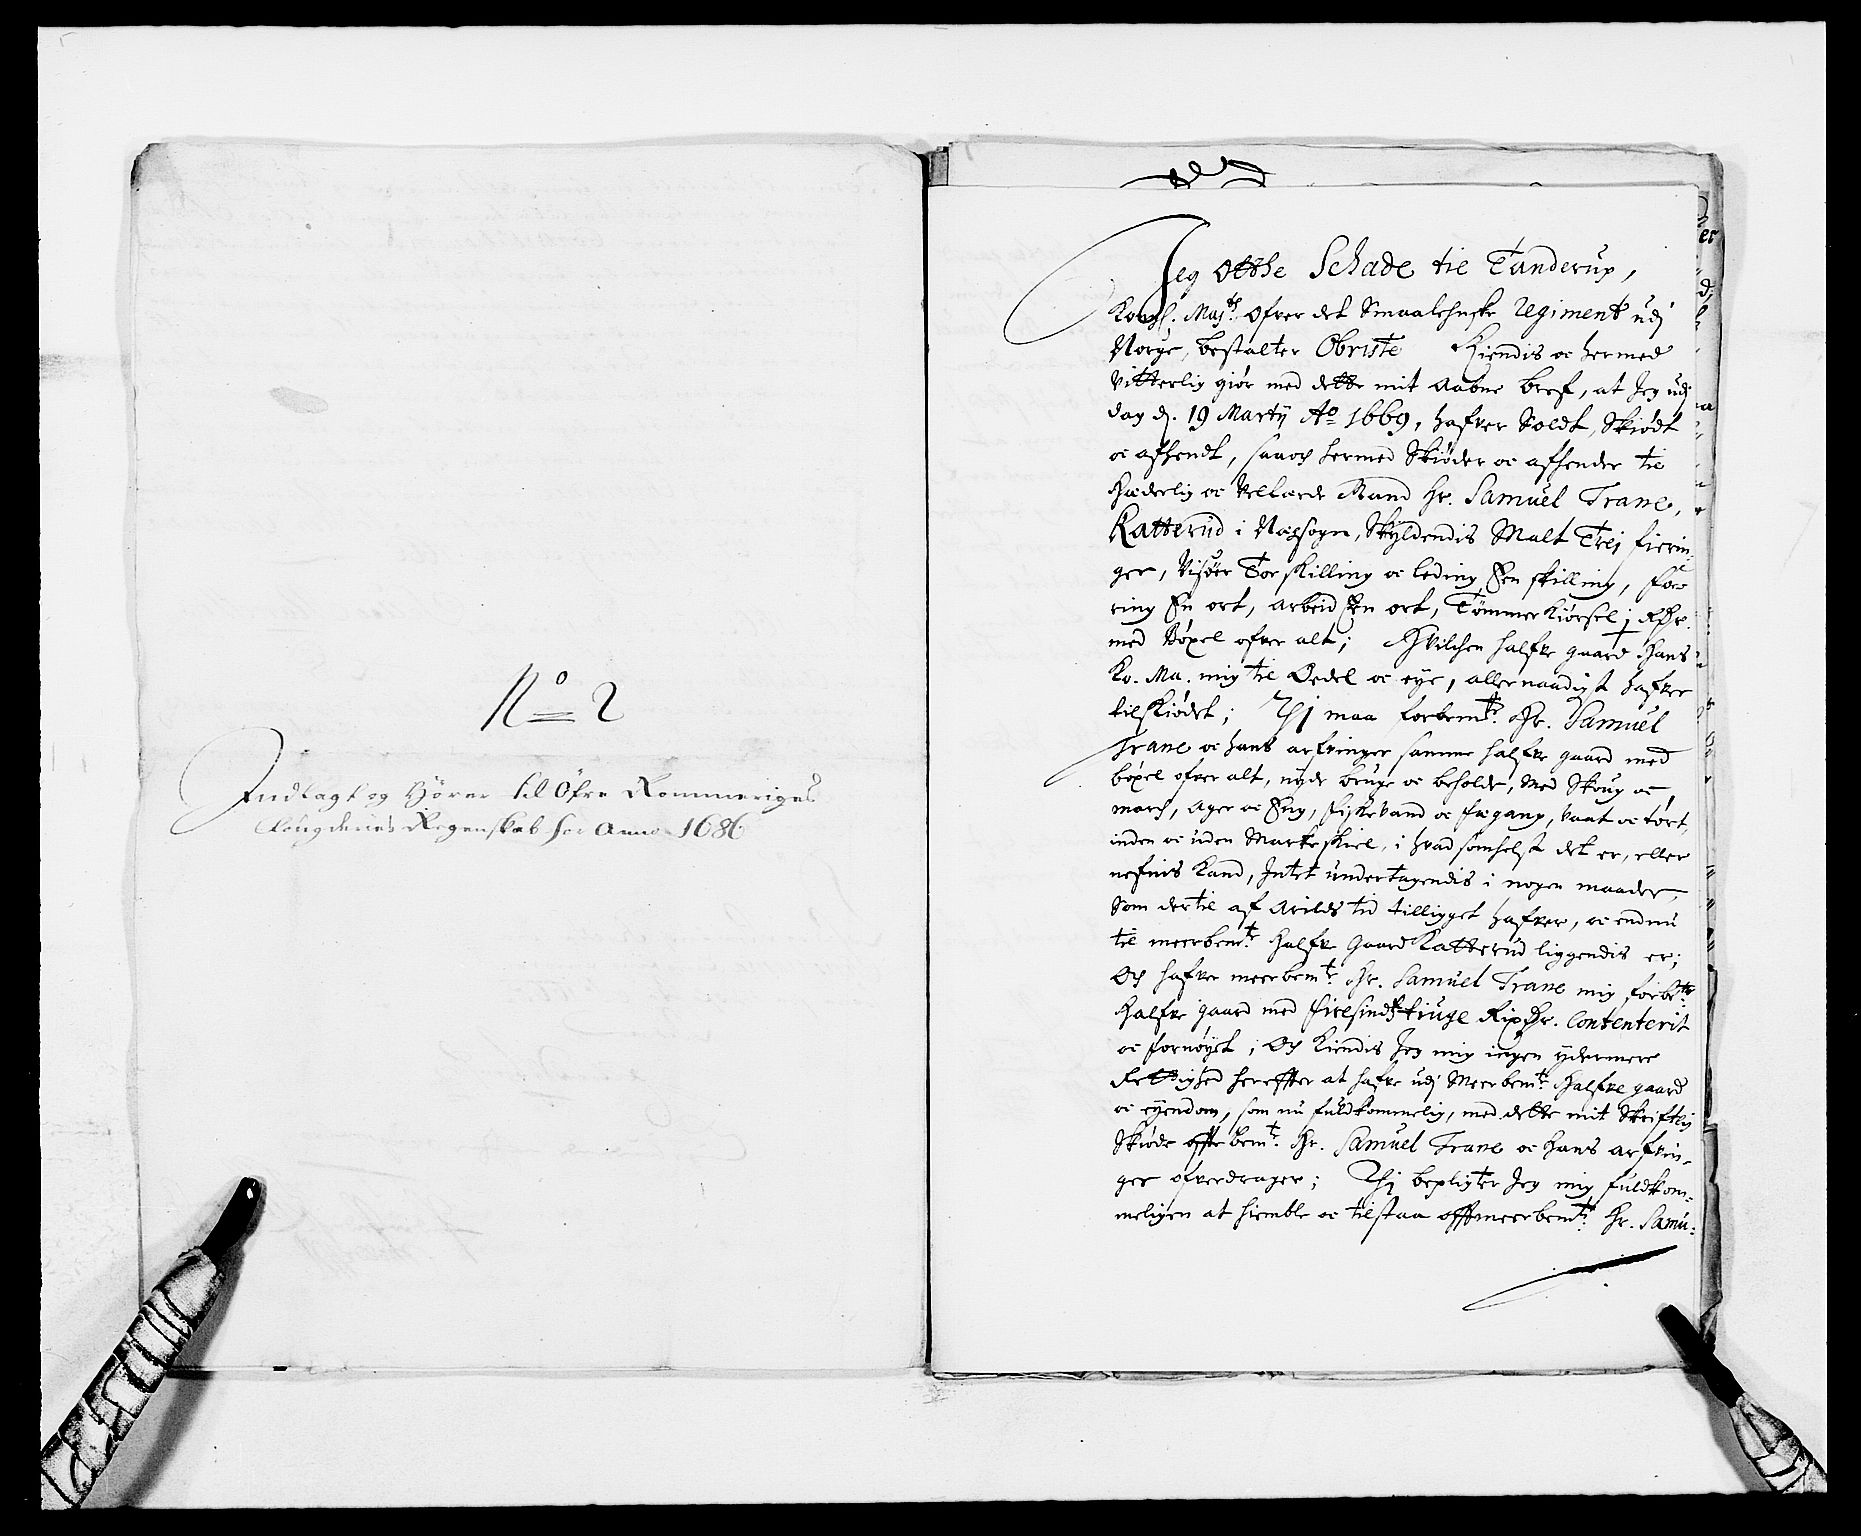 No 2
Indlagt og Hörer til Öfre Rommeriges
Fougderies Regenskab for Anno 1686
Jeg Otthe Schade til Tanderup,
Kongl. Maÿts Ofver det Smaalehnske Regiment udj
Norge, bestalter Obriste Kiendis oc hermed
vitterlig giör med dette mit Aabne bref, at Jeg udj
dag d. 19 Martij Ao 1669, hafver Soldt, Skiödt
oc afhendt, saaoch hermed Skiöder oc afhender til
Hæderlig oc Vellærde Mand Hr. Samuel Trane,
Katterud i Næssogn, Skyldendis Malt Trej fierin-
ger, Visöer Tor skilling oc leding Sen skilling, foe
ring En ort, arbeid En ort, Tömmer Kiörsel j Rdr.
med Böxel ofver alt; Hvilchen halfve gaard Hans
Ko. Ma. mig til Oedel oc eye, allernaadigst hafver
tilskiödet; Thj maa forbemte. Hr. Samuel
Trane oc hans arfvinger samme halfve gaard med
böxel ofver alt, nyde bruge oc beholde, Med Skoug oc
march, Ager oc Eng, fiskevand oc fægang, vaat oc tört,
inden oc uden Markeskiel, i hvad somhelst det er, eller
nefnis kand, Intet undertagendis i nogen maader,
Som dertil af Arilds tid tilligget hafver, oc endnu
til meerbemte Halfve Gaard Katterud liggendis er;
Och hafver meerbemte Hr. Samuel Trane mig forbte
Halfve gaard med firesindstiuge Rixdr. Contenterit
oc fornöyet; Och Kiendis Jeg mig ingen ydermere
Rettighed herefter at hafve udj Meerbemte Halfve gaard
oc eyendom, som nu fuldkommelig, med dette mit Skriftlig
Skiöde oftebemte. Hr. Samuel Trane oc Hans arfvin-
ger ofverdrager; Thj bepligter Jeg mig fuldkom-
meligen at hiemble oc tilstaa offtmeerbemte Hr. Samu-